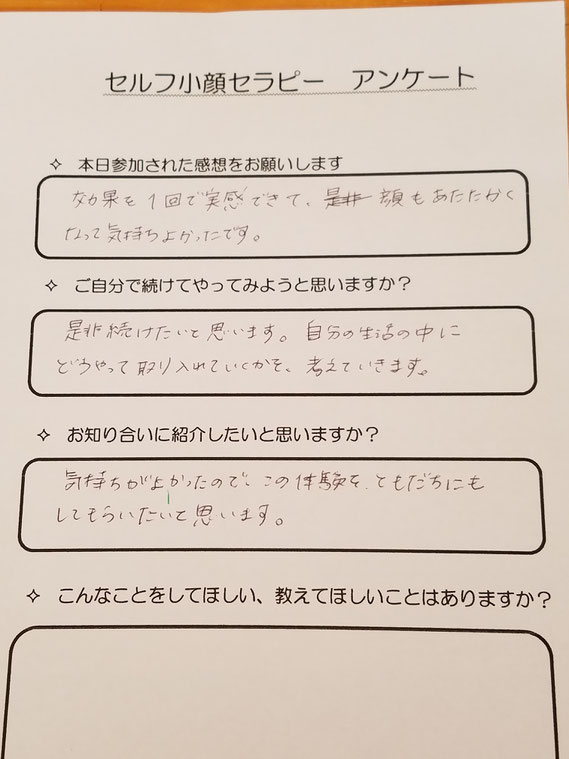 セルフ小顔セラピー　アンケート
✧ 本日参加された感想をお願いします
効果を1回で実感できて、是非 顔もあたたかく
なって気持ちよかったです。
✧ ご自分で続けてやってみようと思いますか？
是非続けたいと思います。自分の生活の中に
どうやって取り入れていくかを、考えていきます。
✧ お知り合いに紹介したいと思いますか？
気持ちがよかったので、この体験を、ともだちにも
してもらいたいと思います。
✧ こんなことをしてほしい、教えてほしいことはありますか？